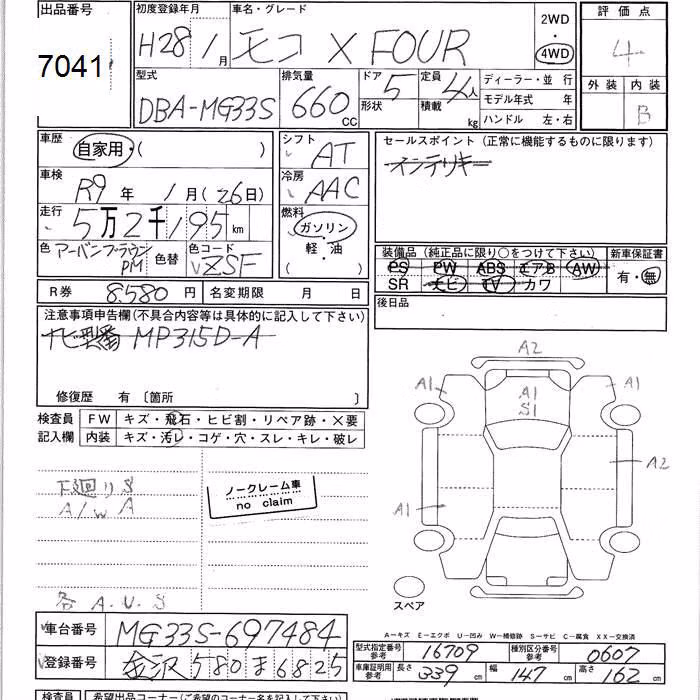 出品番号 7041
初度登録年月 H28年 1月
車名・グレード モコ X FOUR
2WD
4WD
評価点 4
外装 内装 B
型式 DBA-MG33S
排気量 660 CC
ドア 5 形状
定員 4人 積載 kg
ディーラー・並 行
モデル年式 年
ハンドル 左・右
車歴 自家用・( )
車検 R9年 1月(26日)
走行 5万2千195 km
色 アーバンブラウンPM 色替 色コード ZSF
シフト AT
冷房 AAC
燃料 ガソリン・軽・油 ( )
セールスポイント(正常に機能するものに限ります)
インテリキー
装備品(純正品に限り○をつけて下さい)
PS PW ABS エアB AW
SR ナビ TV カワ
新車保証書 有・無
後日品
R券 8.580円 名変期限 月 日
注意事項申告欄(不具合内容等は具体的に記入して下さい)
ナビ型番 MP315D-A
修復歴 有〔箇所 〕
検査員記入欄
FW キズ・飛石・ヒビ割・リペア跡・×要
内装 キズ・汚レ・コゲ・穴・スレ・キレ・破レ
下廻りS
A/W A
各 A.U.S
ノークレーム車
no claim
A2
A1
A1
S1
A1
A2
A1
スペア
車台番号 MG33S-697484
登録番号 金沢 580 ま 6825
A-キズ E-エクボ U-凹み W-補修跡 S-サビ C-腐食 XX-交換済
型式指定番号 参考 16709 種別区分番号 参考 0607
車庫証明用 参考 長さ 339 cm 幅 147 cm 高さ 162 cm
検査員 希望出品コーナー(ご希望のコーナー名を記入して下さい)